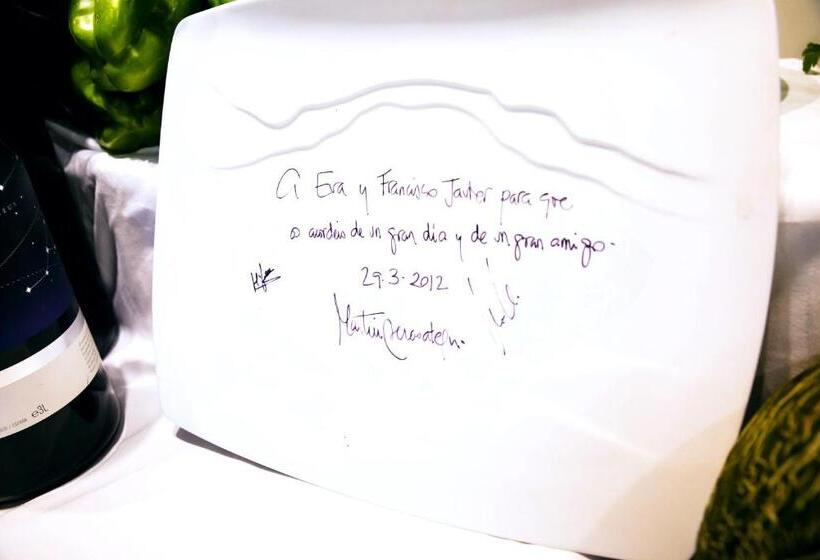 A Eva y Francisco Javier para que
os acordéis de un gran día y de un gran amigo.
29.3.2012
Martín Berasategui
e3L
ESPAÑA